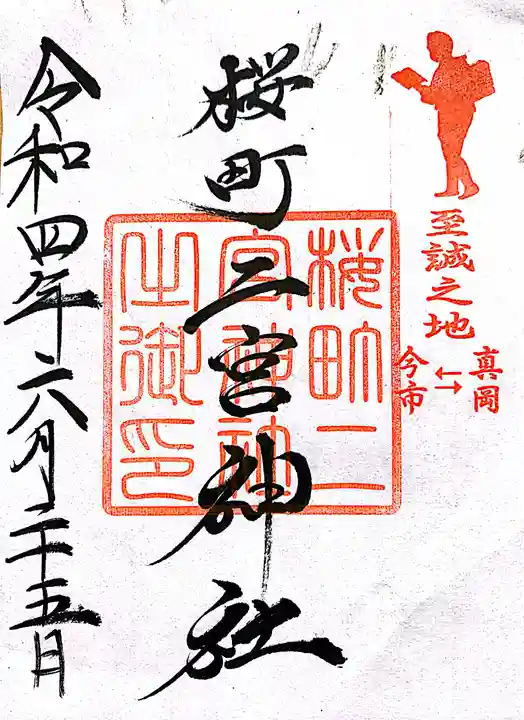 至誠之地
真岡
←→
今市
桜町二宮神社
桜町二
宮神社
之御印
令和四年六月二十五日